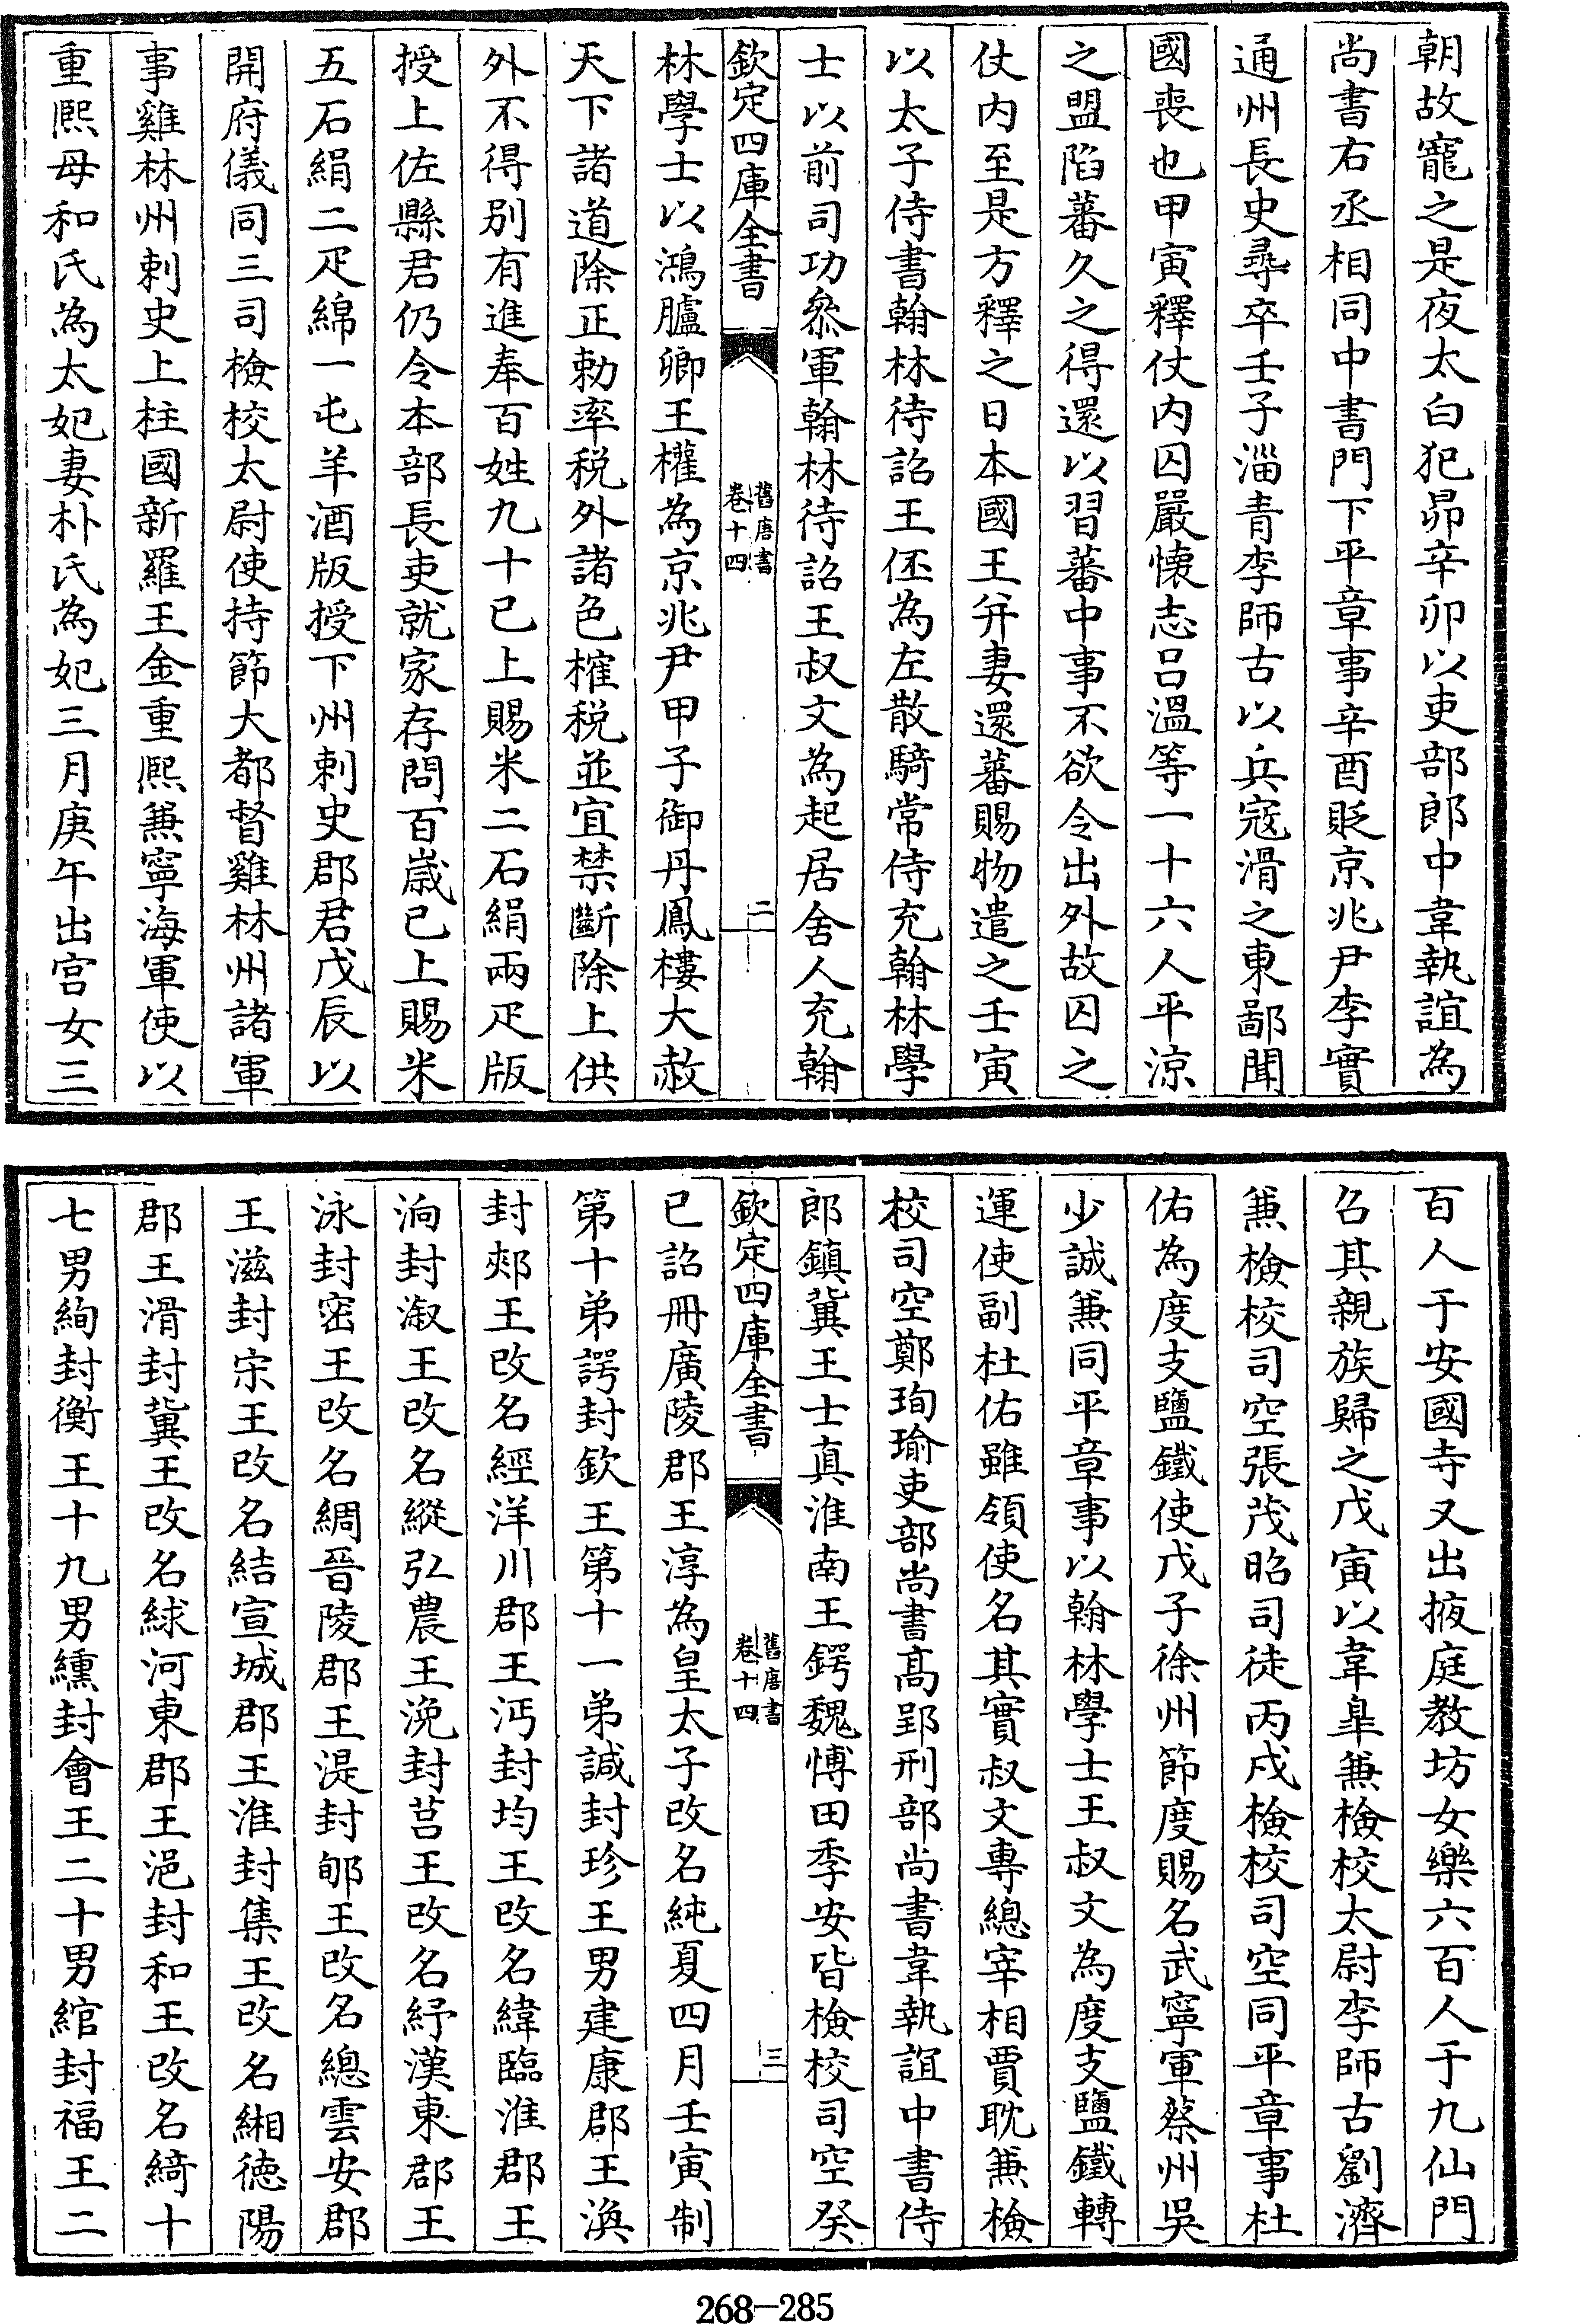 朝故寵之是夜太白犯昴辛卯以吏部郎中韋執誼為
尚書右丞相同中書門下平章事辛酉貶京兆尹李實
通州長史尋卒壬子淄青李師古以兵寇滑之東鄙聞
國喪也甲寅釋仗内囚嚴懷志吕溫等一十六人平涼
之盟陷蕃久之得還以習蕃中事不欲令出外故囚之
仗内至是方釋之日本國王并妻還蕃賜物遣之壬寅
以太子侍書翰林待詔王伾為左散騎常侍充翰林學
士以前司功叅軍翰林待詔王叔文為起居舍人充翰
欽定四庫全書
舊唐書
卷十四
二
林學士以鴻臚卿王權為京兆尹甲子御丹鳳樓大赦
天下諸道除正勅率税外諸色榷税並宜禁斷除上供
外不得别有進奉百姓九十已上賜米二石絹兩疋版
授上佐縣君仍令本部長吏就家存問百嵗已上賜米
五石絹二疋綿一屯羊酒版授下州刺史郡君戊辰以
開府儀同三司檢校太尉使持節大都督雞林州諸軍
事雞林州刺史上柱國新羅王金重熙兼寧海軍使以
重熙母和氏為太妃妻朴氏為妃三月庚午出宫女三
百人于安國寺又出掖庭教坊女樂六百人于九仙門
召其親族歸之戊寅以韋臯兼檢校太尉李師古劉濟
兼檢校司空張茂昭司徒丙戌檢校司空同平章事杜
佑為度支鹽鐵使戊子徐州節度賜名武寧軍蔡州吳
少誠兼同平章事以翰林學士王叔文為度支鹽鐵轉
運使副杜佑雖領使名其實叔文專總宰相賈耽兼檢
校司空鄭珣瑜吏部尚書髙郢刑部尚書韋執誼中書侍
郎鎮冀王士真淮南王鍔魏博田季安皆檢校司空癸
欽定四庫全書
舊唐書
卷十四
三
已詔冊廣陵郡王淳為皇太子改名純夏四月壬寅制
第十弟諤封欽王第十一弟諴封珍王男建康郡王渙
封郯王改名經洋川郡王沔封均王改名緯臨淮郡王
泂封漵王改名縱弘農王浼封莒王改名紓漢東郡王
泳封密王改名綢晉陵郡王湜封郇王改名總雲安郡
王滋封宋王改名結宣城郡王淮封集王改名緗徳陽
郡王滑封冀王改名絿河東郡王浥封和王改名綺十
七男絢封衡王十九男纁封會王二十男綰封福王二
268-285